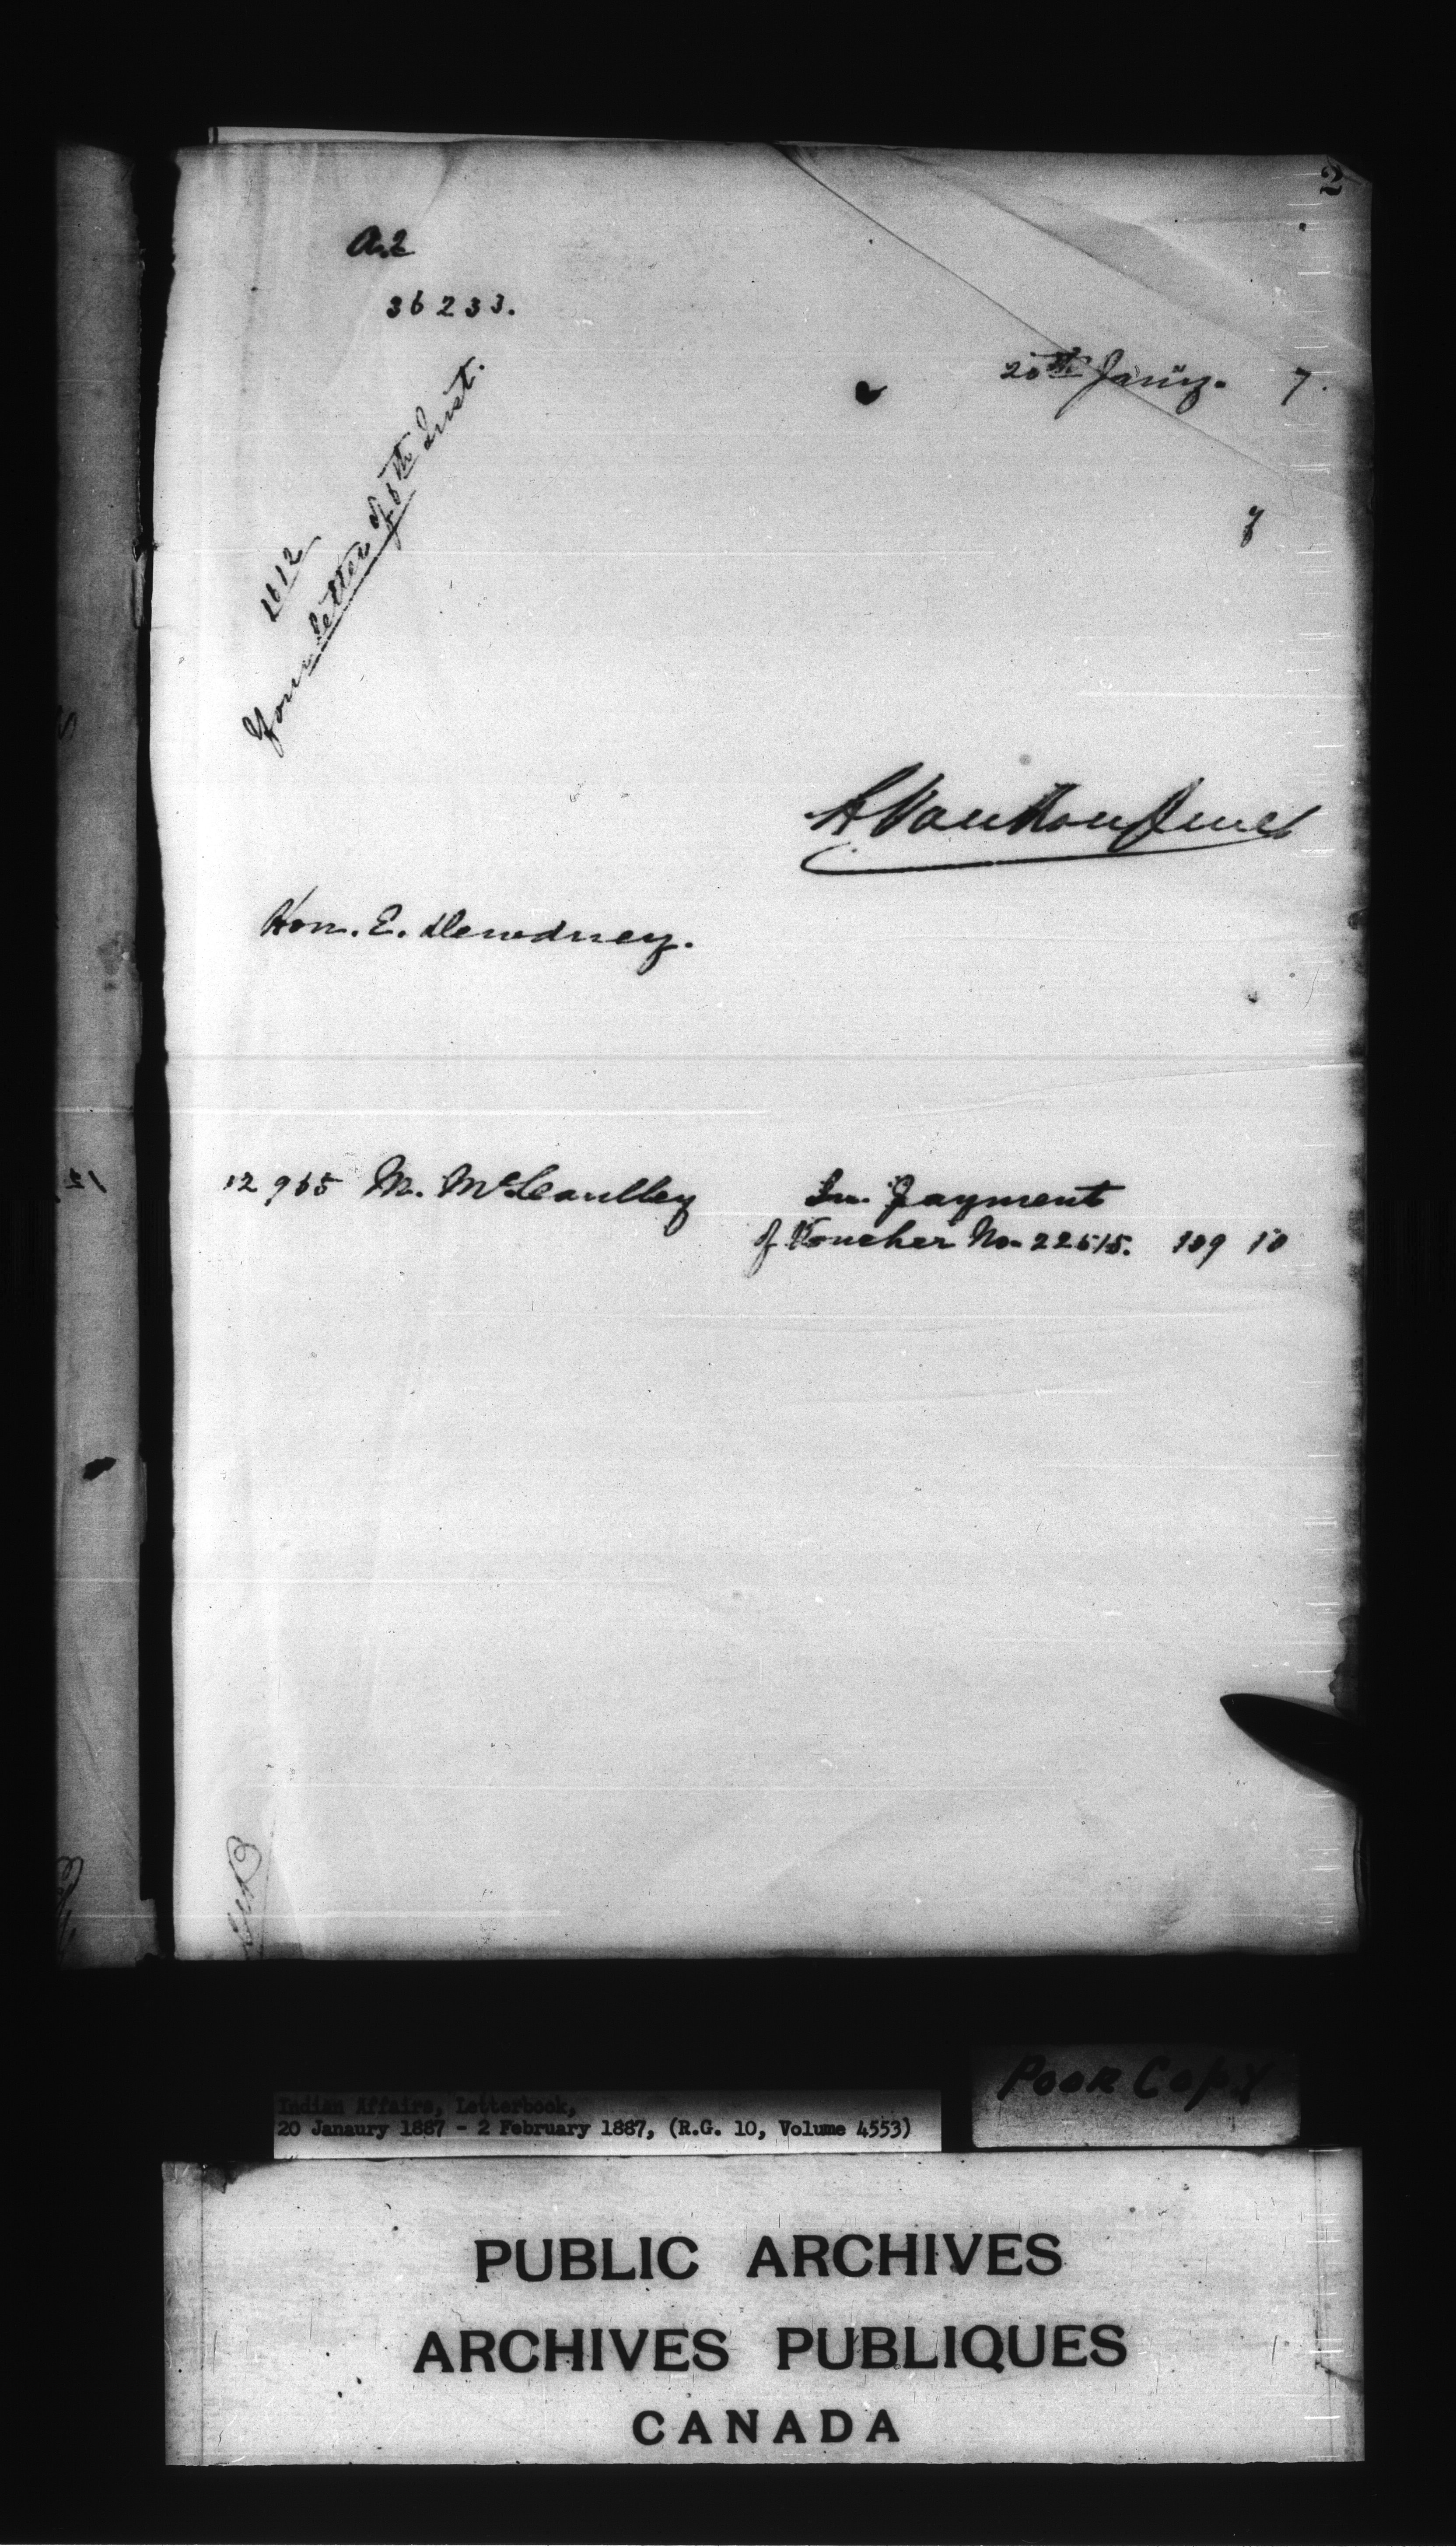 2
A.2
36233.
20th Jan'y. 7.
2612
Your letter of 6th Inst.
L VanKoughnet
Hon. E. Dewdney.
12965 M. McCaulley In Payment
of Voucher No. 22515. 109 10
Poor Copy
Indian Affairs, Letterbook,
20 Janaury 1887 - 2 February 1887, (R.G. 10, Volume 4553)
PUBLIC ARCHIVES
ARCHIVES PUBLIQUES
CANADA